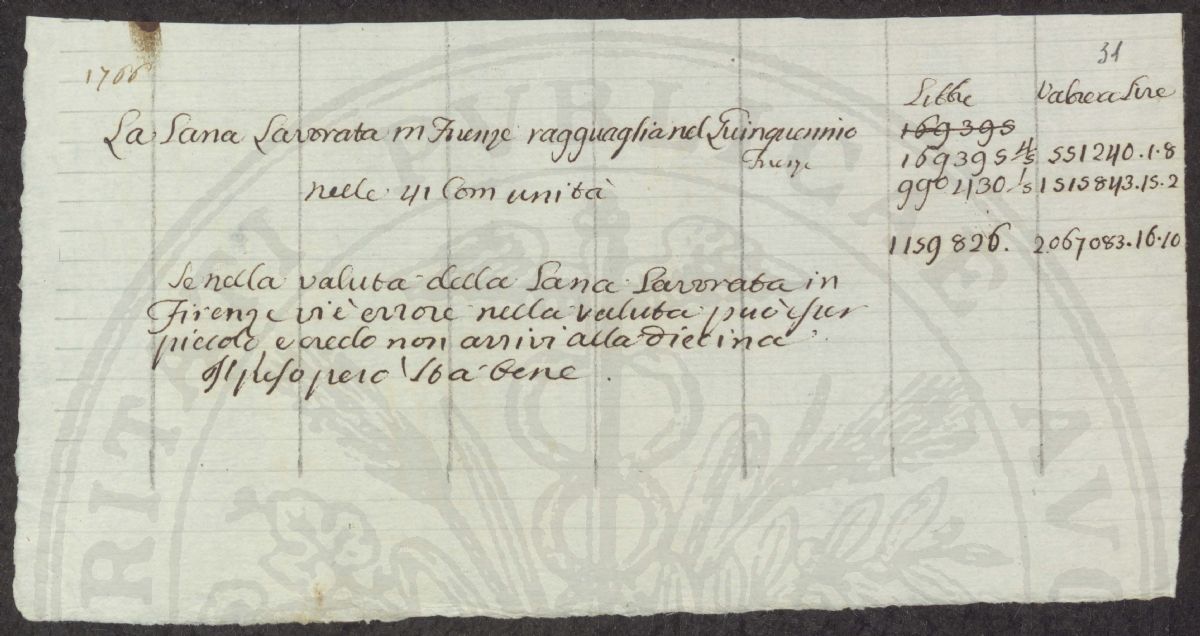 31
1766
Libbre Valore a Lire
La Lana Lavorata in Firenze ragguaglia nel Quinquennio 169395
Firenze 169395 4/5 551240.1.8
nelle 41 Comunità 990430 1/5 1515843.15.2
1159826. 2067083.16.10
Se nella valuta della Lana Lavorata in
Firenze vi è errore nella valuta può esser
piccolo e credo non arrivi alla diecina
Il peso però sta bene.